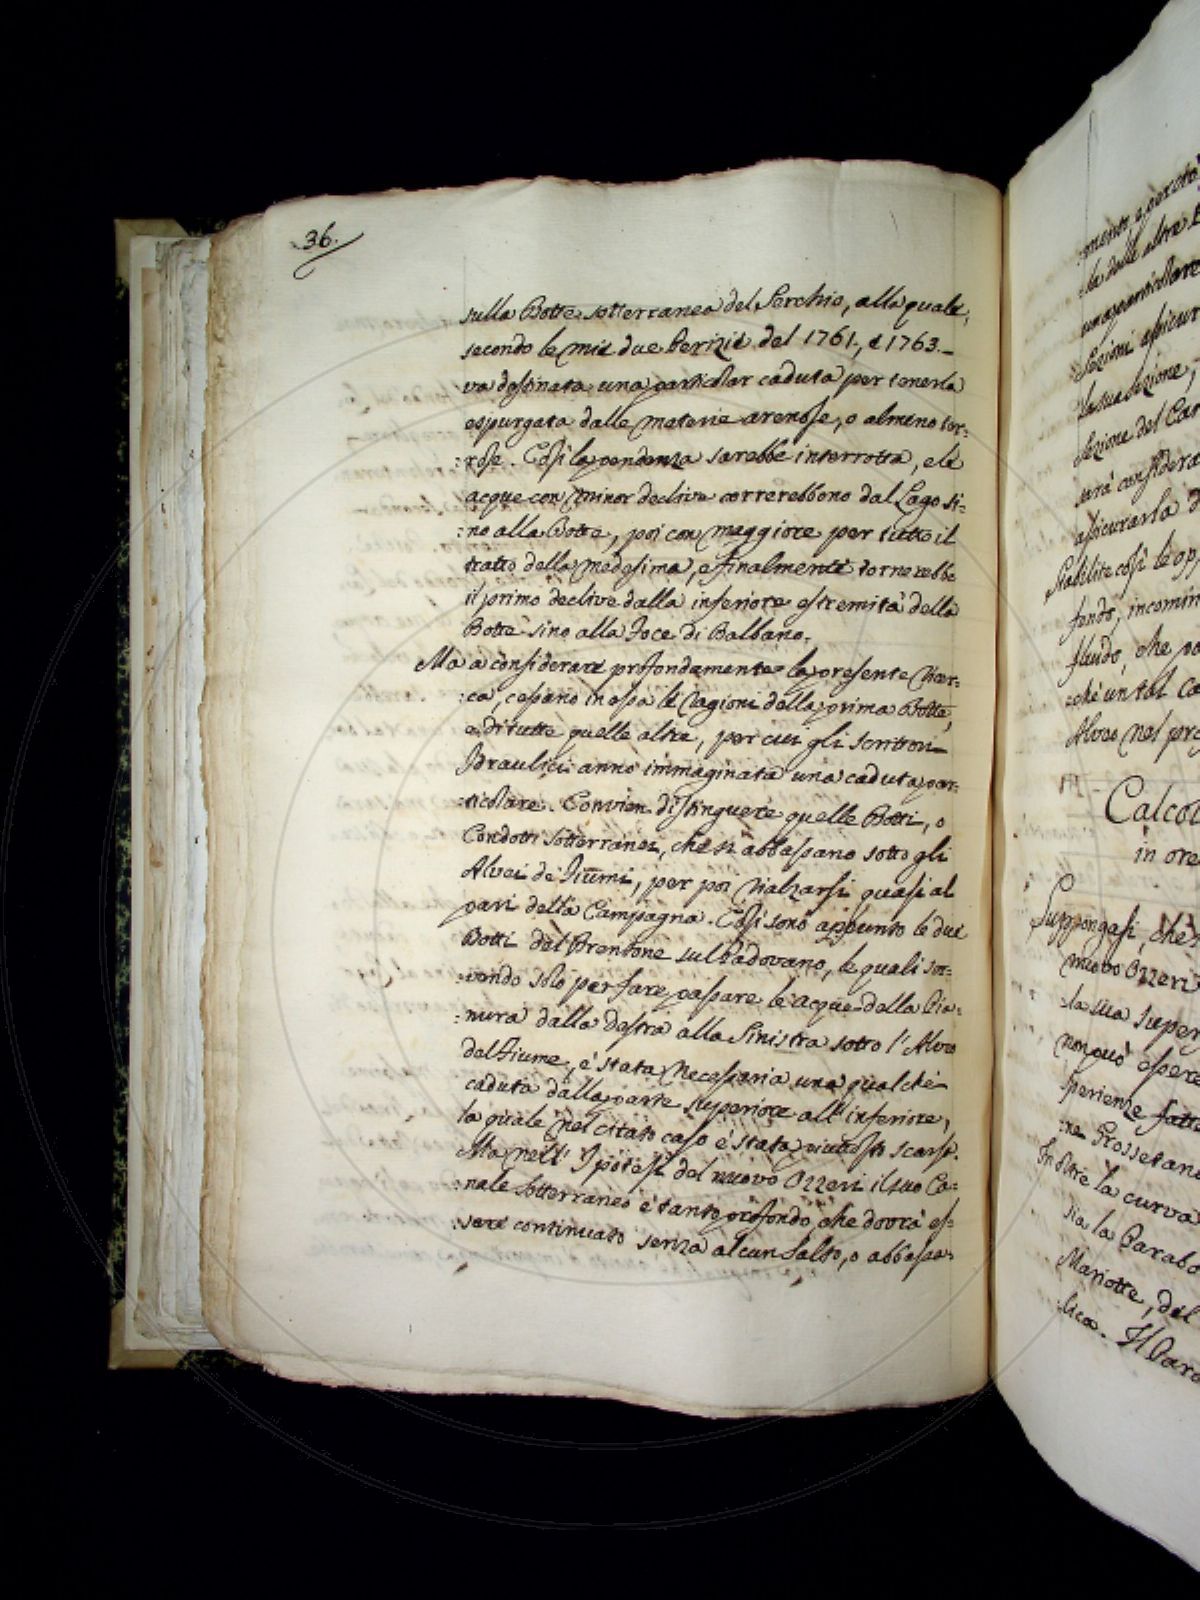 36.
sulla Botte sotterranea del Serchio, alla quale,
secondo le mie due Perizie del 1761., e 1763.
va destinata una particolar caduta per tenerla
espurgata dalle materie arenose, o almeno tor:
:rose. Così la pendenza sarebbe interrotta, e le
acque con minor declive correrebbono dal Lago si:
:no alla Botte, poi con maggiore per tutto il
tratto della medesima, e finalmente tornerebbe
il primo declive dalla inferiore estremità della
Botte sino alla Foce di Balbano.
Ma a considerare profondamente la presente Ricer:
:ca, cessano in essa le ragioni della prima Botte,
e di tutte quelle altre, per cui gli scrittori
Idraulici anno immaginata una caduta par:
:ticolare. Convien distinguere quelle Botti, o
Condotti sotterranei, che si abbassano sotto gli
Alvei de' Fiumi, per poi rialzarsi quasi al
pari della Campagna. Così sono appunto le due
Botti del Brentone sul Padovano, le quali ser:
:vendo solo per fare passare le acque della Pia:
:nura dalla destra alla Sinistra sotto l'Alveo
del Fiume, è stata necessaria una qualche
caduta dalla parte superiore all'inferiore,
la quale nel citato caso è stata piuttosto scarsa.
Ma nell'Ipotesi del nuovo Ozzeri il suo Ca:
:nale sotterraneo è tanto profondo, che dovrà es:
:sere continuato senza alcun Salto, o abbassa:
:mento, e perciò
la dalle altre
Sezioni assicur
la sua sezione,
sezione del Can
sarà considera
assicurarla d
Stabilite così le op
fendo, incomin
fluido, che po
Alveo nel pro
Calcol
in ore
Suppongasi, che
nuovo Ozzeri
la sua super
non può essere
sperienze fatte
:ne Grossetane
Inoltre la curva
sia la Parabo
Mariotte, del
:lica. Il Para